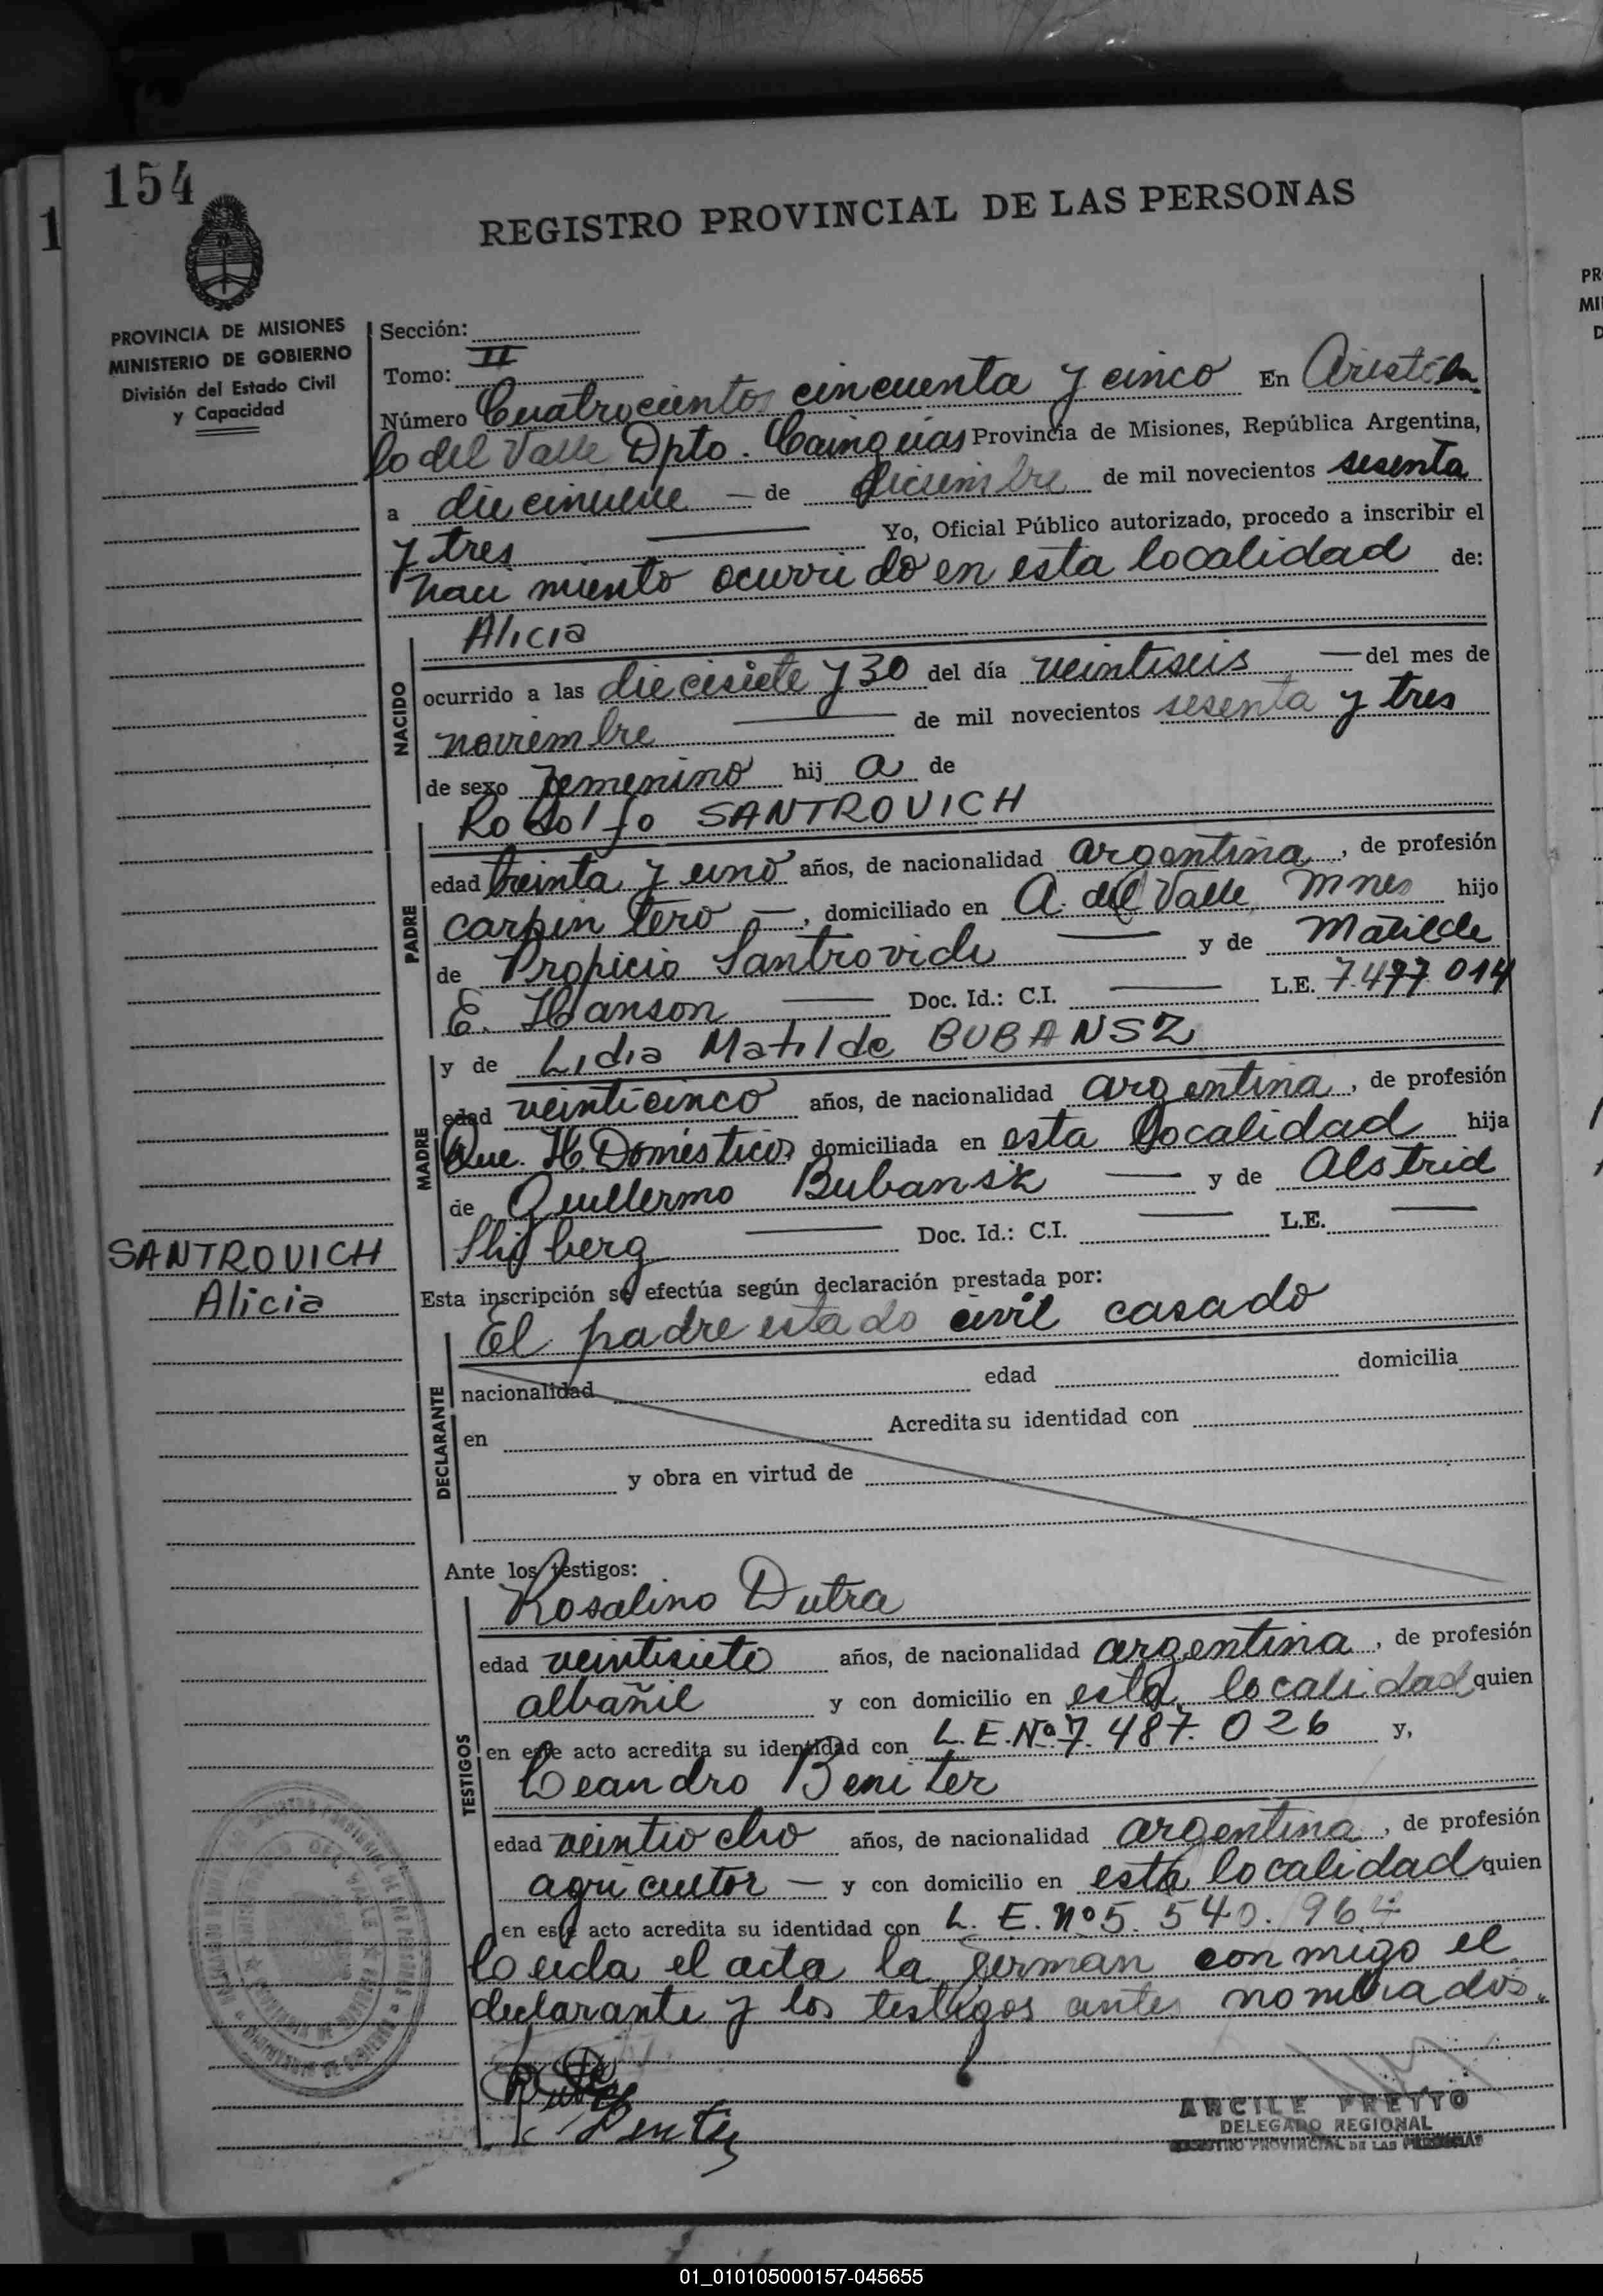 154
1
REGISTRO PROVINCIAL DE LAS PERSONAS
PROVINCIA DE MISIONES
MINISTERIO DE GOBIERNO
División del Estado Civil
y Capacidad
Sección:
Tomo: II
Número Cuatrocientos cincuenta y cinco En Aristóbu
lo del Valle Dpto. Cainguas Provincia de Misiones, República Argentina,
a diecinueve — de diciembre de mil novecientos sesenta
y tres — Yo, Oficial Público autorizado, procedo a inscribir el
naci miento ocurrido en esta localidad de:
NACIDO
Alicia
ocurrido a las diecisiete y 30 del día veintiseis — del mes de
noviembre — de mil novecientos sesenta y tres
de sexo femenino hij a de
PADRE
Rodolfo SANTROVICH
edad treinta y uno años, de nacionalidad argentina, de profesión
carpintero —, domiciliado en A. del Valle Mnes hijo
de Propicio Santrovich — y de Matilde
E. Hanson — Doc. Id.: C.I. — L.E. 7.477.014
MADRE
y de Lidia Matilde BUBANSZ
edad veinticinco años, de nacionalidad argentina, de profesión
Que. H. Domésticos domiciliada en esta localidad hija
de Guillermo Bubansk — y de Alstrid
berg — Doc. Id.: C.I. — L.E. —
SANTROVICH
Alicia
Esta inscripción se efectúa según declaración prestada por:
DECLARANTE
El padre estado civil casado
nacionalidad edad domicilia
en Acredita su identidad con
y obra en virtud de
Ante los testigos:
TESTIGOS
Rosalino Dutra
edad veintisiete años, de nacionalidad argentina, de profesión
albañil y con domicilio en esta localidad quien
en este acto acredita su identidad con L.E.Nº 7.487.026 y,
Leandro Beniter
edad veintiocho años, de nacionalidad argentina, de profesión
agricultor — y con domicilio en esta localidad quien
en este acto acredita su identidad con L.E. nº 5.540.964
Leida el acta la firman conmigo el
declarante y los testigos antes nombrados.
ARCILE PRETTO
DELEGADO REGIONAL
REGISTRO PROVINCIAL DE LAS PERSONAS
01_010105000157-045655